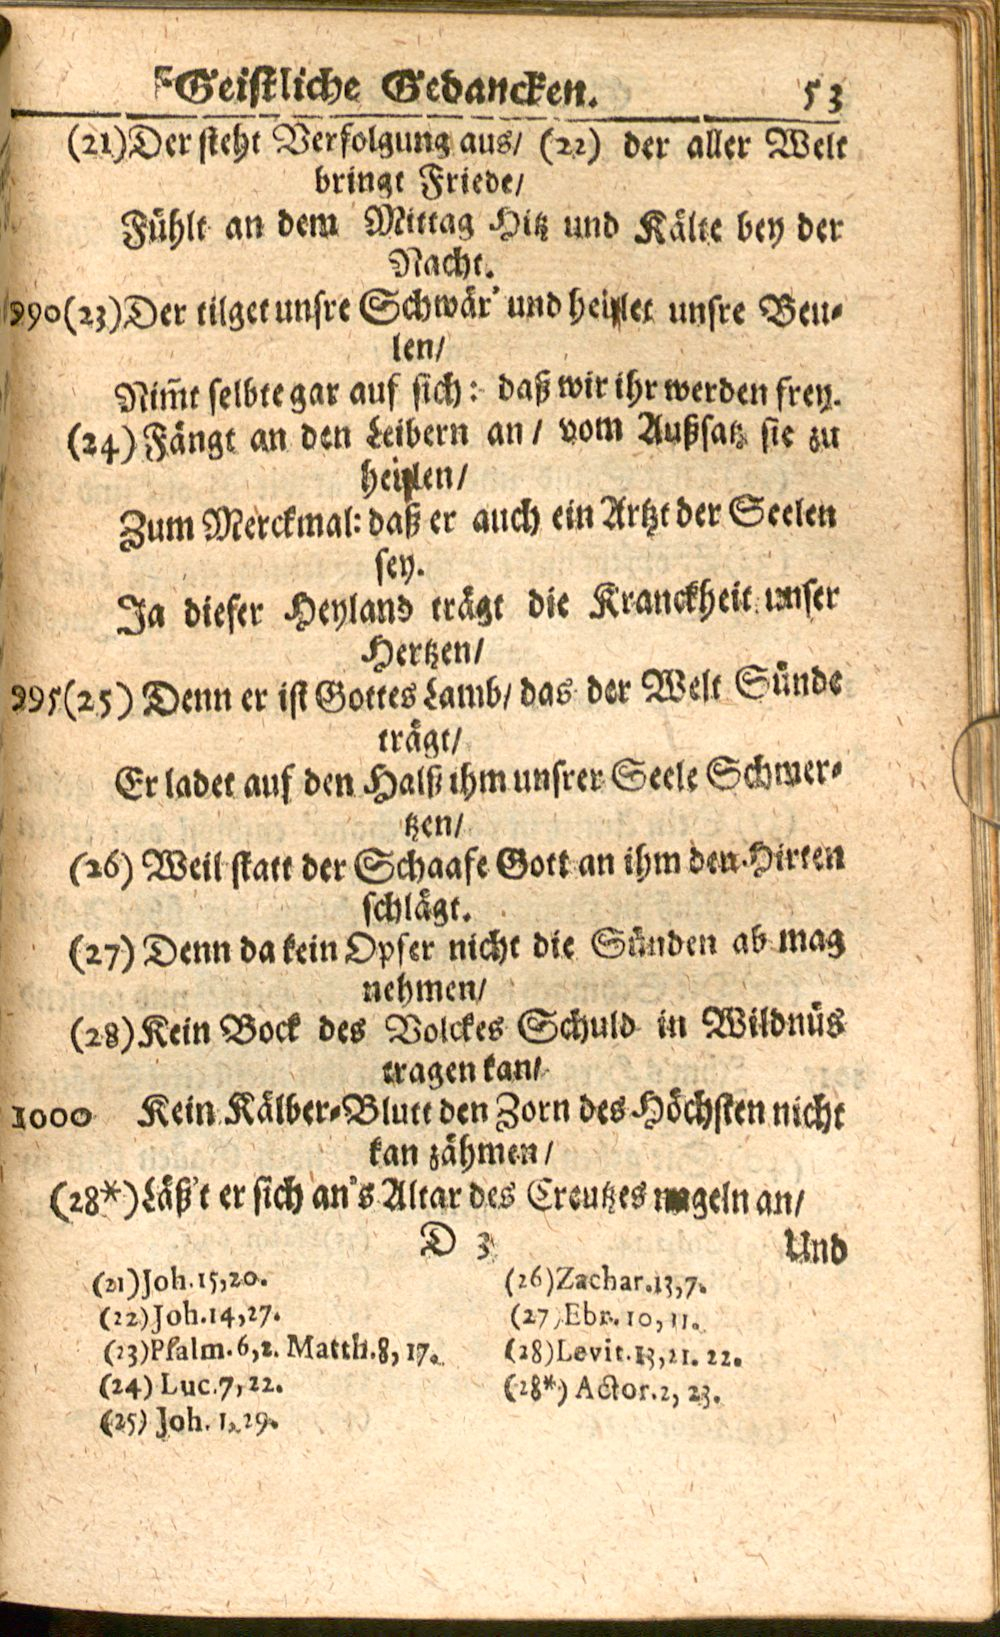 Geistliche Gedancken. 53
(21) Der steht Verfolgung aus/ (22) der aller Welt
bringt Friede/
Fühlt an dem Mittag Hitz und Kälte bey der
Nacht.
990 (23) Der tilget unsre Schwär' und heilet unsre Beu-
len/
Nim̄t selbte gar auf sich: daß wir ihr werden frey.
(24) Fängt an den Leibern an/ vom Außsatz sie zu
heilen/
Zum Merckmal: daß er auch ein Artzt der Seelen
sey.
Ja dieser Heyland trägt die Kranckheit unser
Hertzen/
995 (25) Denn er ist Gottes Lamb/ das der Welt Sünde
trägt/
Er ladet auf den Halß ihm unsrer Seele Schmer-
tzen/
(26) Weil statt der Schaafe Gott an ihm den Hirten
schlägt.
(27) Denn da kein Opfer nicht die Sünden ab mag
nehmen/
(28) Kein Bock des Volckes Schuld in Wildnüs
tragen kan/
1000 Kein Kälber-Blutt den Zorn des Höchsten nicht
kan zähmen/
(28*) Läß't er sich an's Altar des Creutzes nageln an/
D 3 Und
(21) Joh. 15, 20.
(22) Joh. 14, 27.
(23) Psalm. 6, 2. Matth. 8, 17.
(24) Luc. 7, 22.
(25) Joh. 1, 29.
(26) Zachar. 13, 7.
(27) Ebr. 10, 11.
(28) Levit. 13, 21. 22.
(28*) Actor. 2, 23.